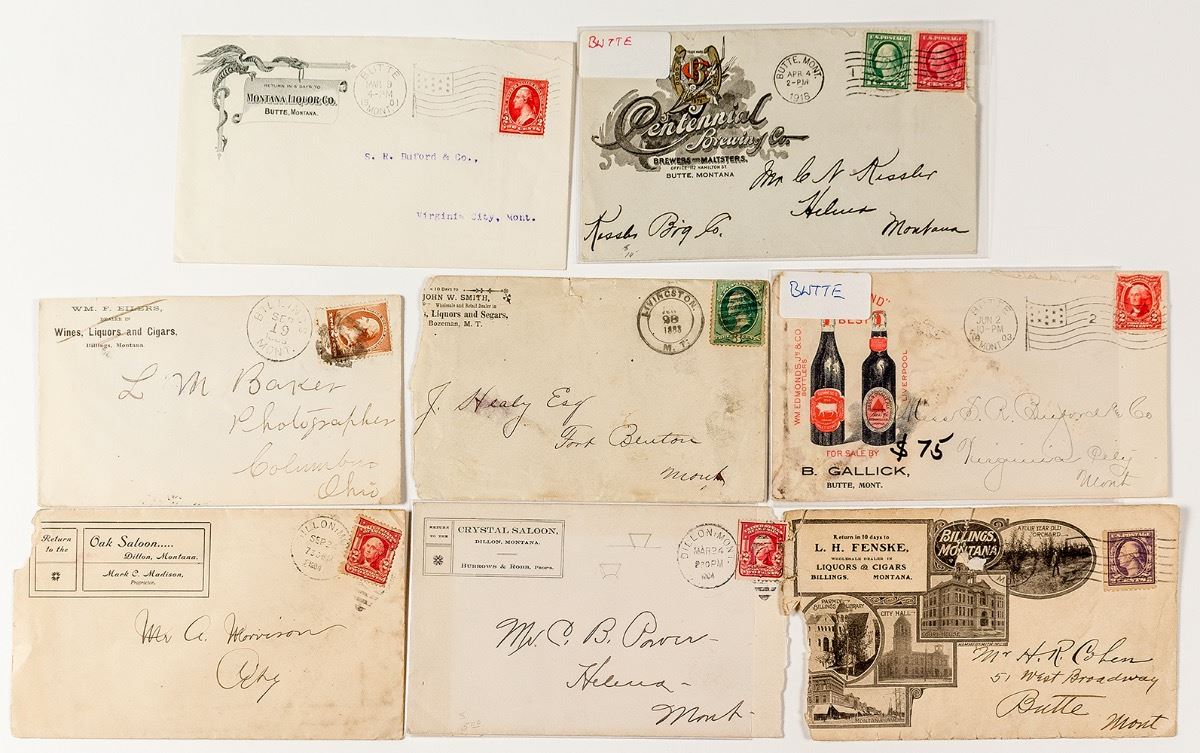 RETURN IN 5 DAYS TO
MONTANA LIQUOR CO.
BUTTE, MONTANA.
BUTTE
MONT.
2
S. R. Buford & Co.,
Virginia City, Mont.
BUTTE
Centennial
Brewing Co.
BREWERS AND MALTSTERS,
OFFICE 112 HAMILTON ST.
BUTTE, MONTANA
BUTTE, MONT.
APR 4
2-PM
1918
U.S. POSTAGE
U.S. POSTAGE
2 CENTS 2
Mr C N Kessler
Helena
Montana
Kessler Brg Co.
WM. F. EILERS,
DEALER IN
Wines, Liquors and Cigars,
Billings, Montana.
BILLINGS
SEP
19
MONT.
L M Baker
Photographer
Columbus
Ohio
10 DAYS TO
JOHN W. SMITH,
Wholesale and Retail Dealer in
Liquors and Segars,
Bozeman, M. T.
LIVINGSTON,
28
1883
M. T.
J. Healy Esq
Fort Benton
Mont
BUTTE
BEST
WM EDMONDS JR & CO
BOTTLERS
LIVERPOOL
FOR SALE BY
B. GALLICK,
BUTTE, MONT.
$75
BUTTE
JUN 2
-PM
03
MONT.
2
S. R. Buford & Co
Virginia City
Mont
Return
to the
Oak Saloon.....
Dillon, Montana.
Mark C. Madison,
Proprietor.
DILLON, MONT.
SEP
1904
Mr A. Morrison
City
RETURN
TO THE
CRYSTAL SALOON,
DILLON, MONTANA.
BURROWS & ROBB, PROPS.
DILLON, MONT.
MAR 24
PM
1904
Mr. C. B. Power
Helena
Mont
Return in 10 days to
L. H. FENSKE,
WHOLESALE DEALER IN
LIQUORS & CIGARS
BILLINGS, MONTANA.
BILLINGS
MONTANA
A FOUR YEAR OLD
ORCHARD
PARMLY
BILLINGS LIBRARY
CITY HALL
COURT HOUSE
MONTANA AVE
Mr H. R. Cohen
51 West Broadway
Butte
Mont